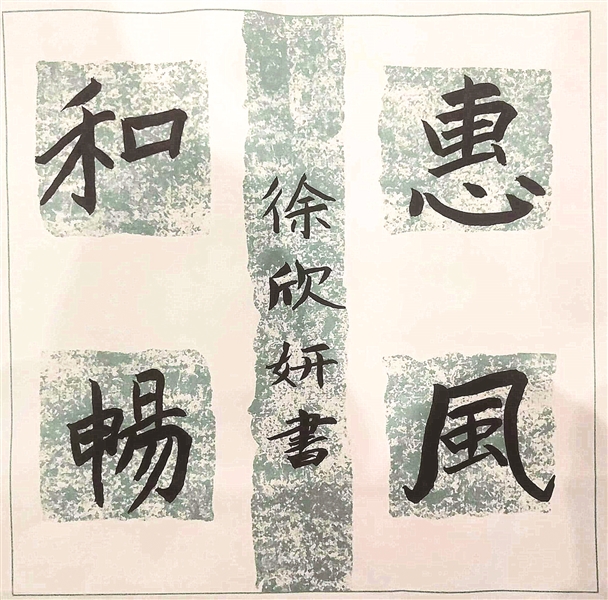 惠風
和暢
徐欣妍書